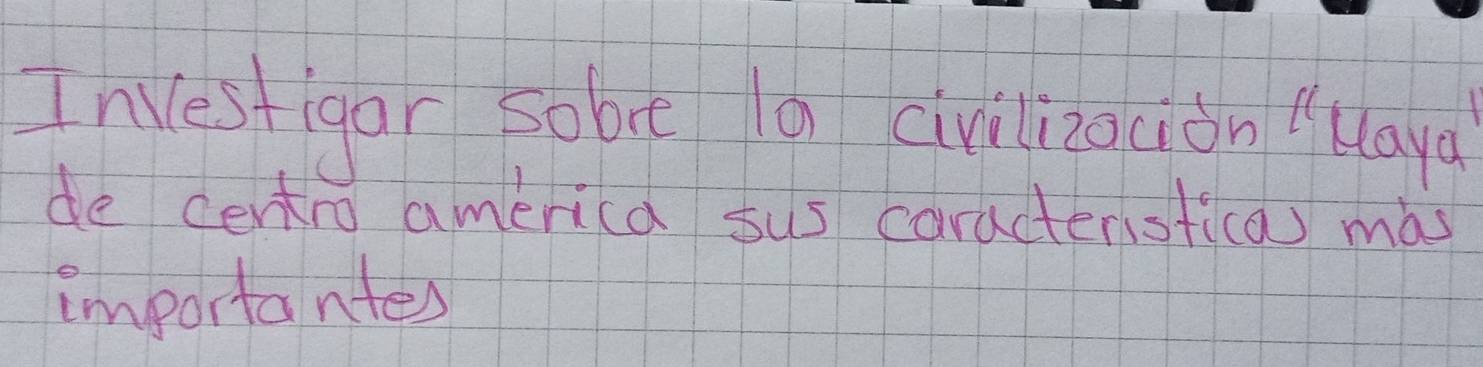 Investigar sobre la civilización "Maya"
de centro américa sus caracteristicas más
importantes